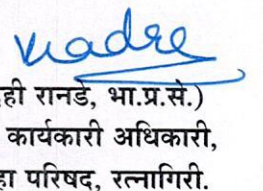 ही रानडे, भा.प्र.से.)
कार्यकारी अधिकारी,
हा परिषद, रत्नागिरी.